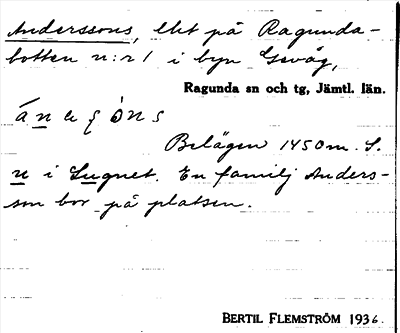 Anderssons, lht på Ragunda-
botten n:r 1 i byn Gevåg,
Ragunda sn och tg, Jämtl. län.
Belägen 1450 m. S.
n i Lugnet. En familj Anders-
son bor på platsen.
BERTIL FLEMSTRÖM 1936.